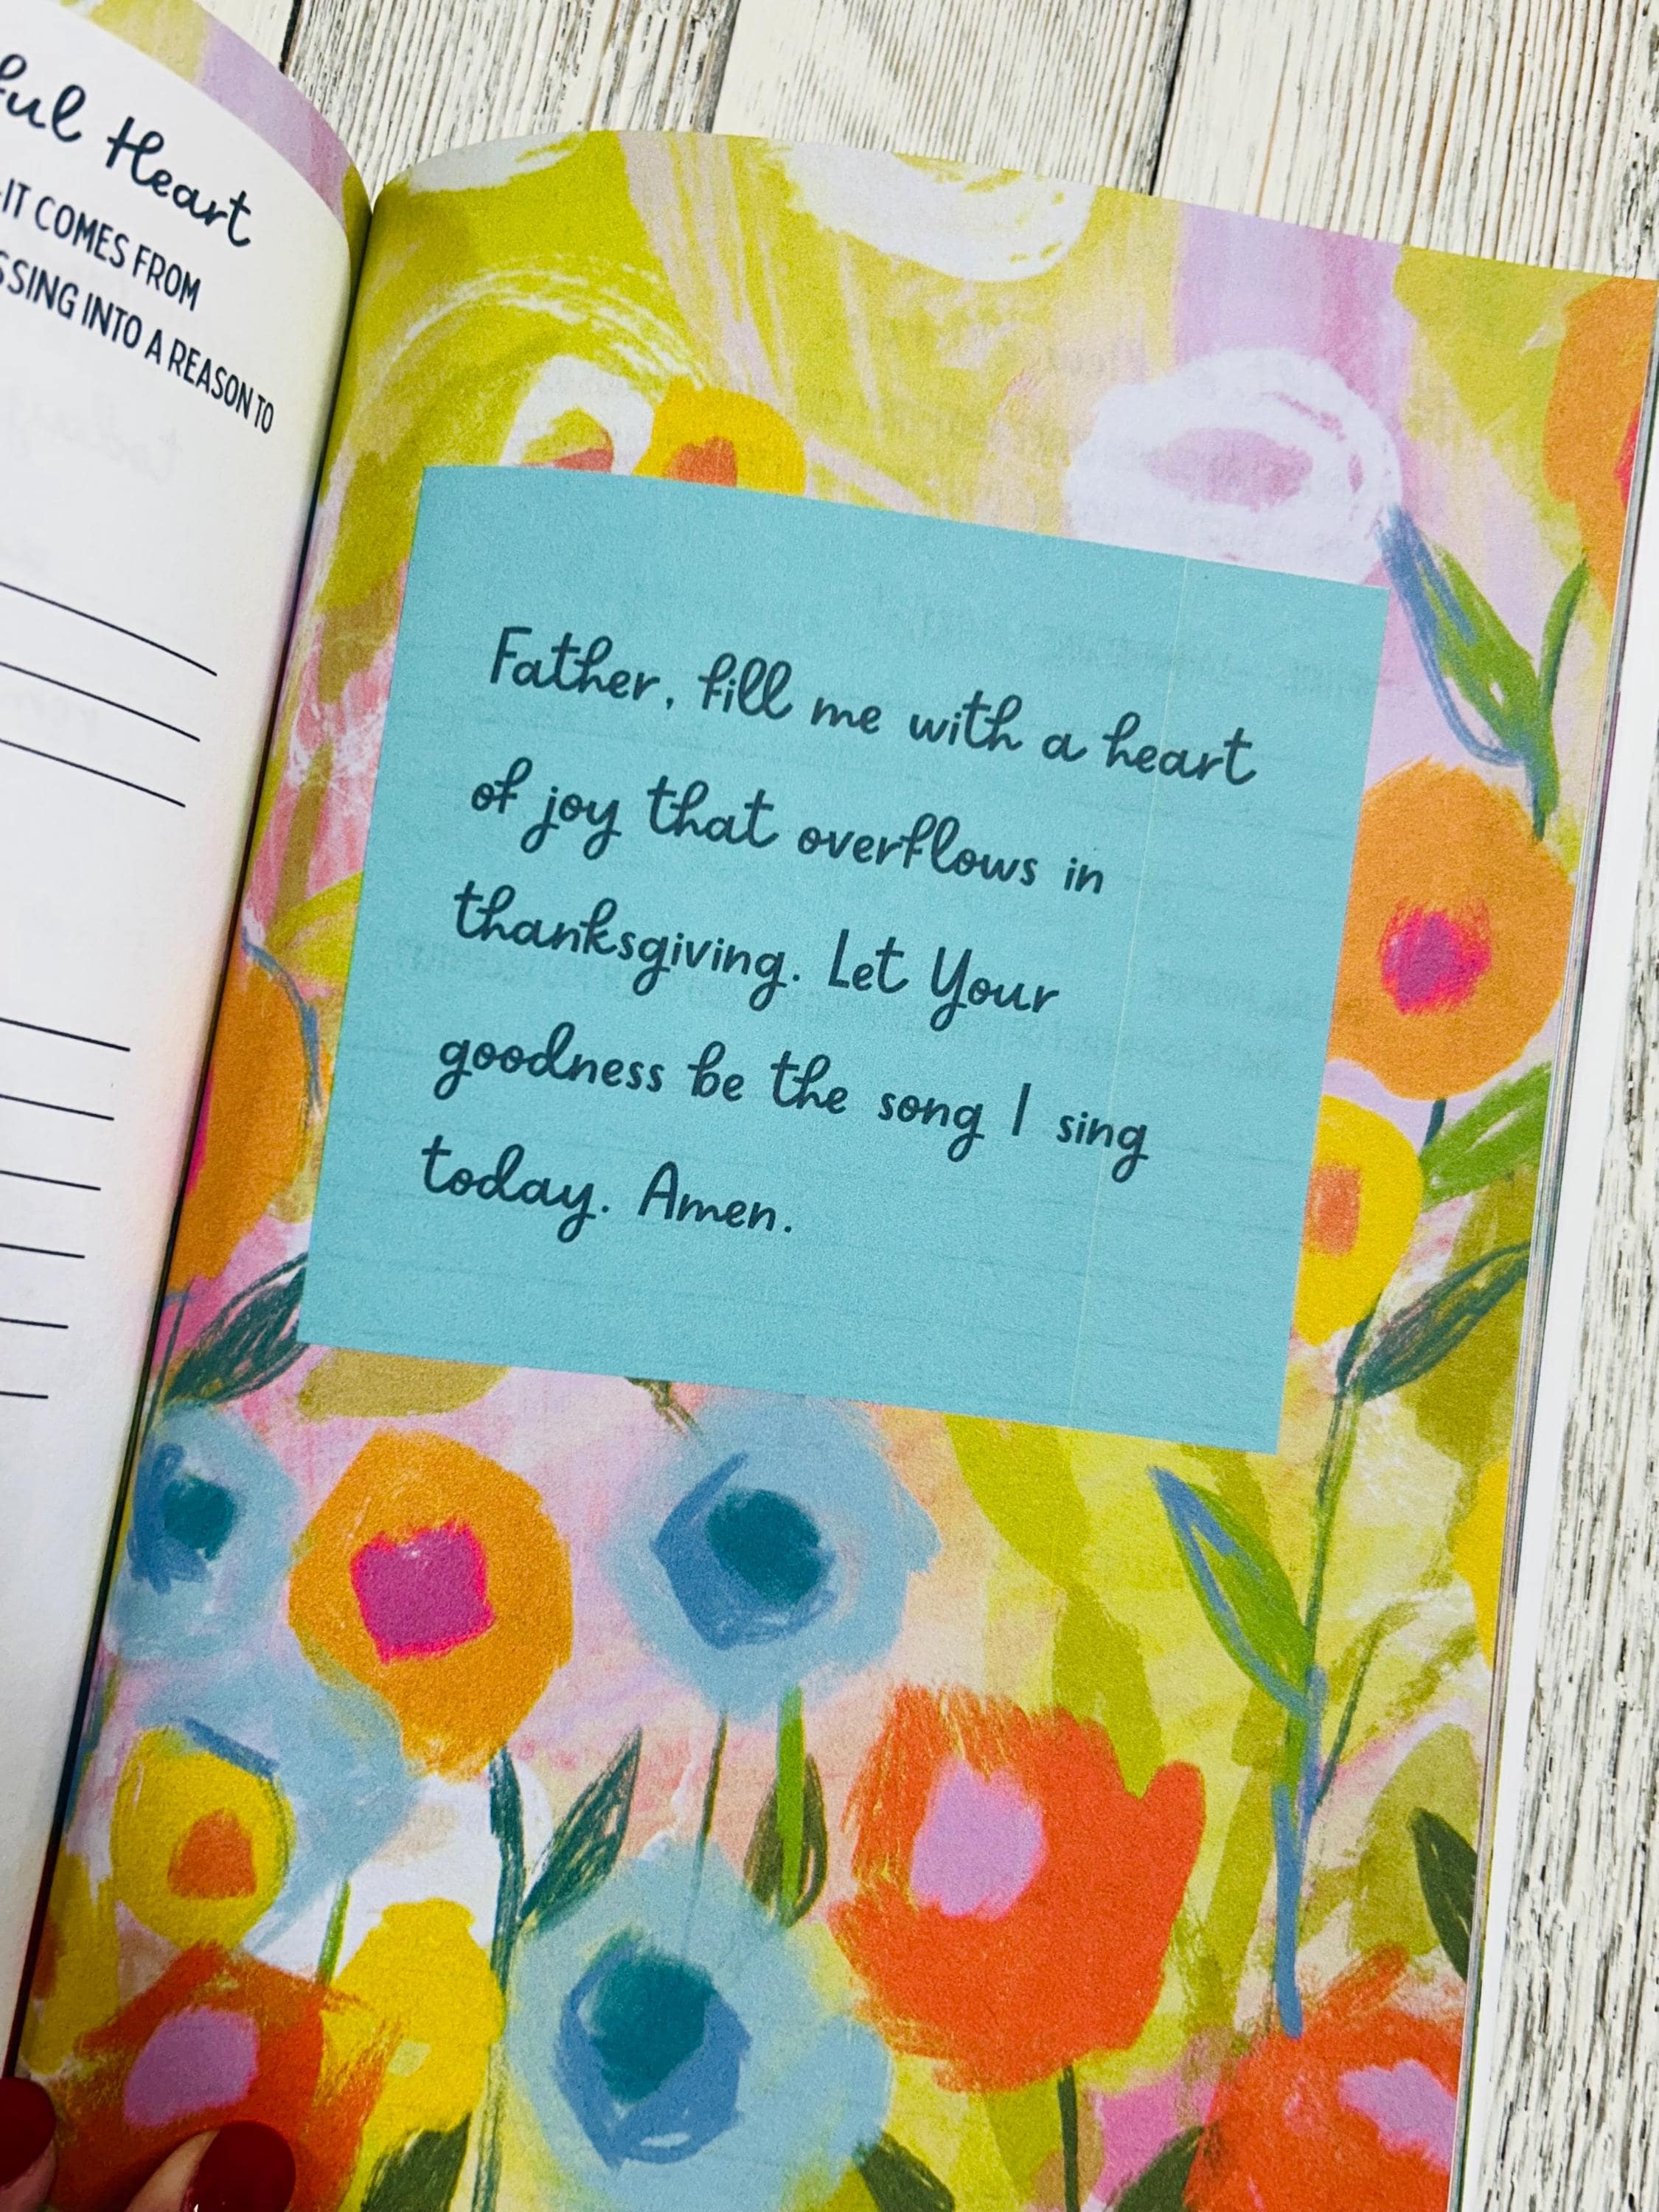 Heart
IT COMES FROM
INTO A REASON TO
Father, fill me with a heart
of joy that overflows in
thanksgiving. Let Your
goodness be the song I sing
today. Amen.